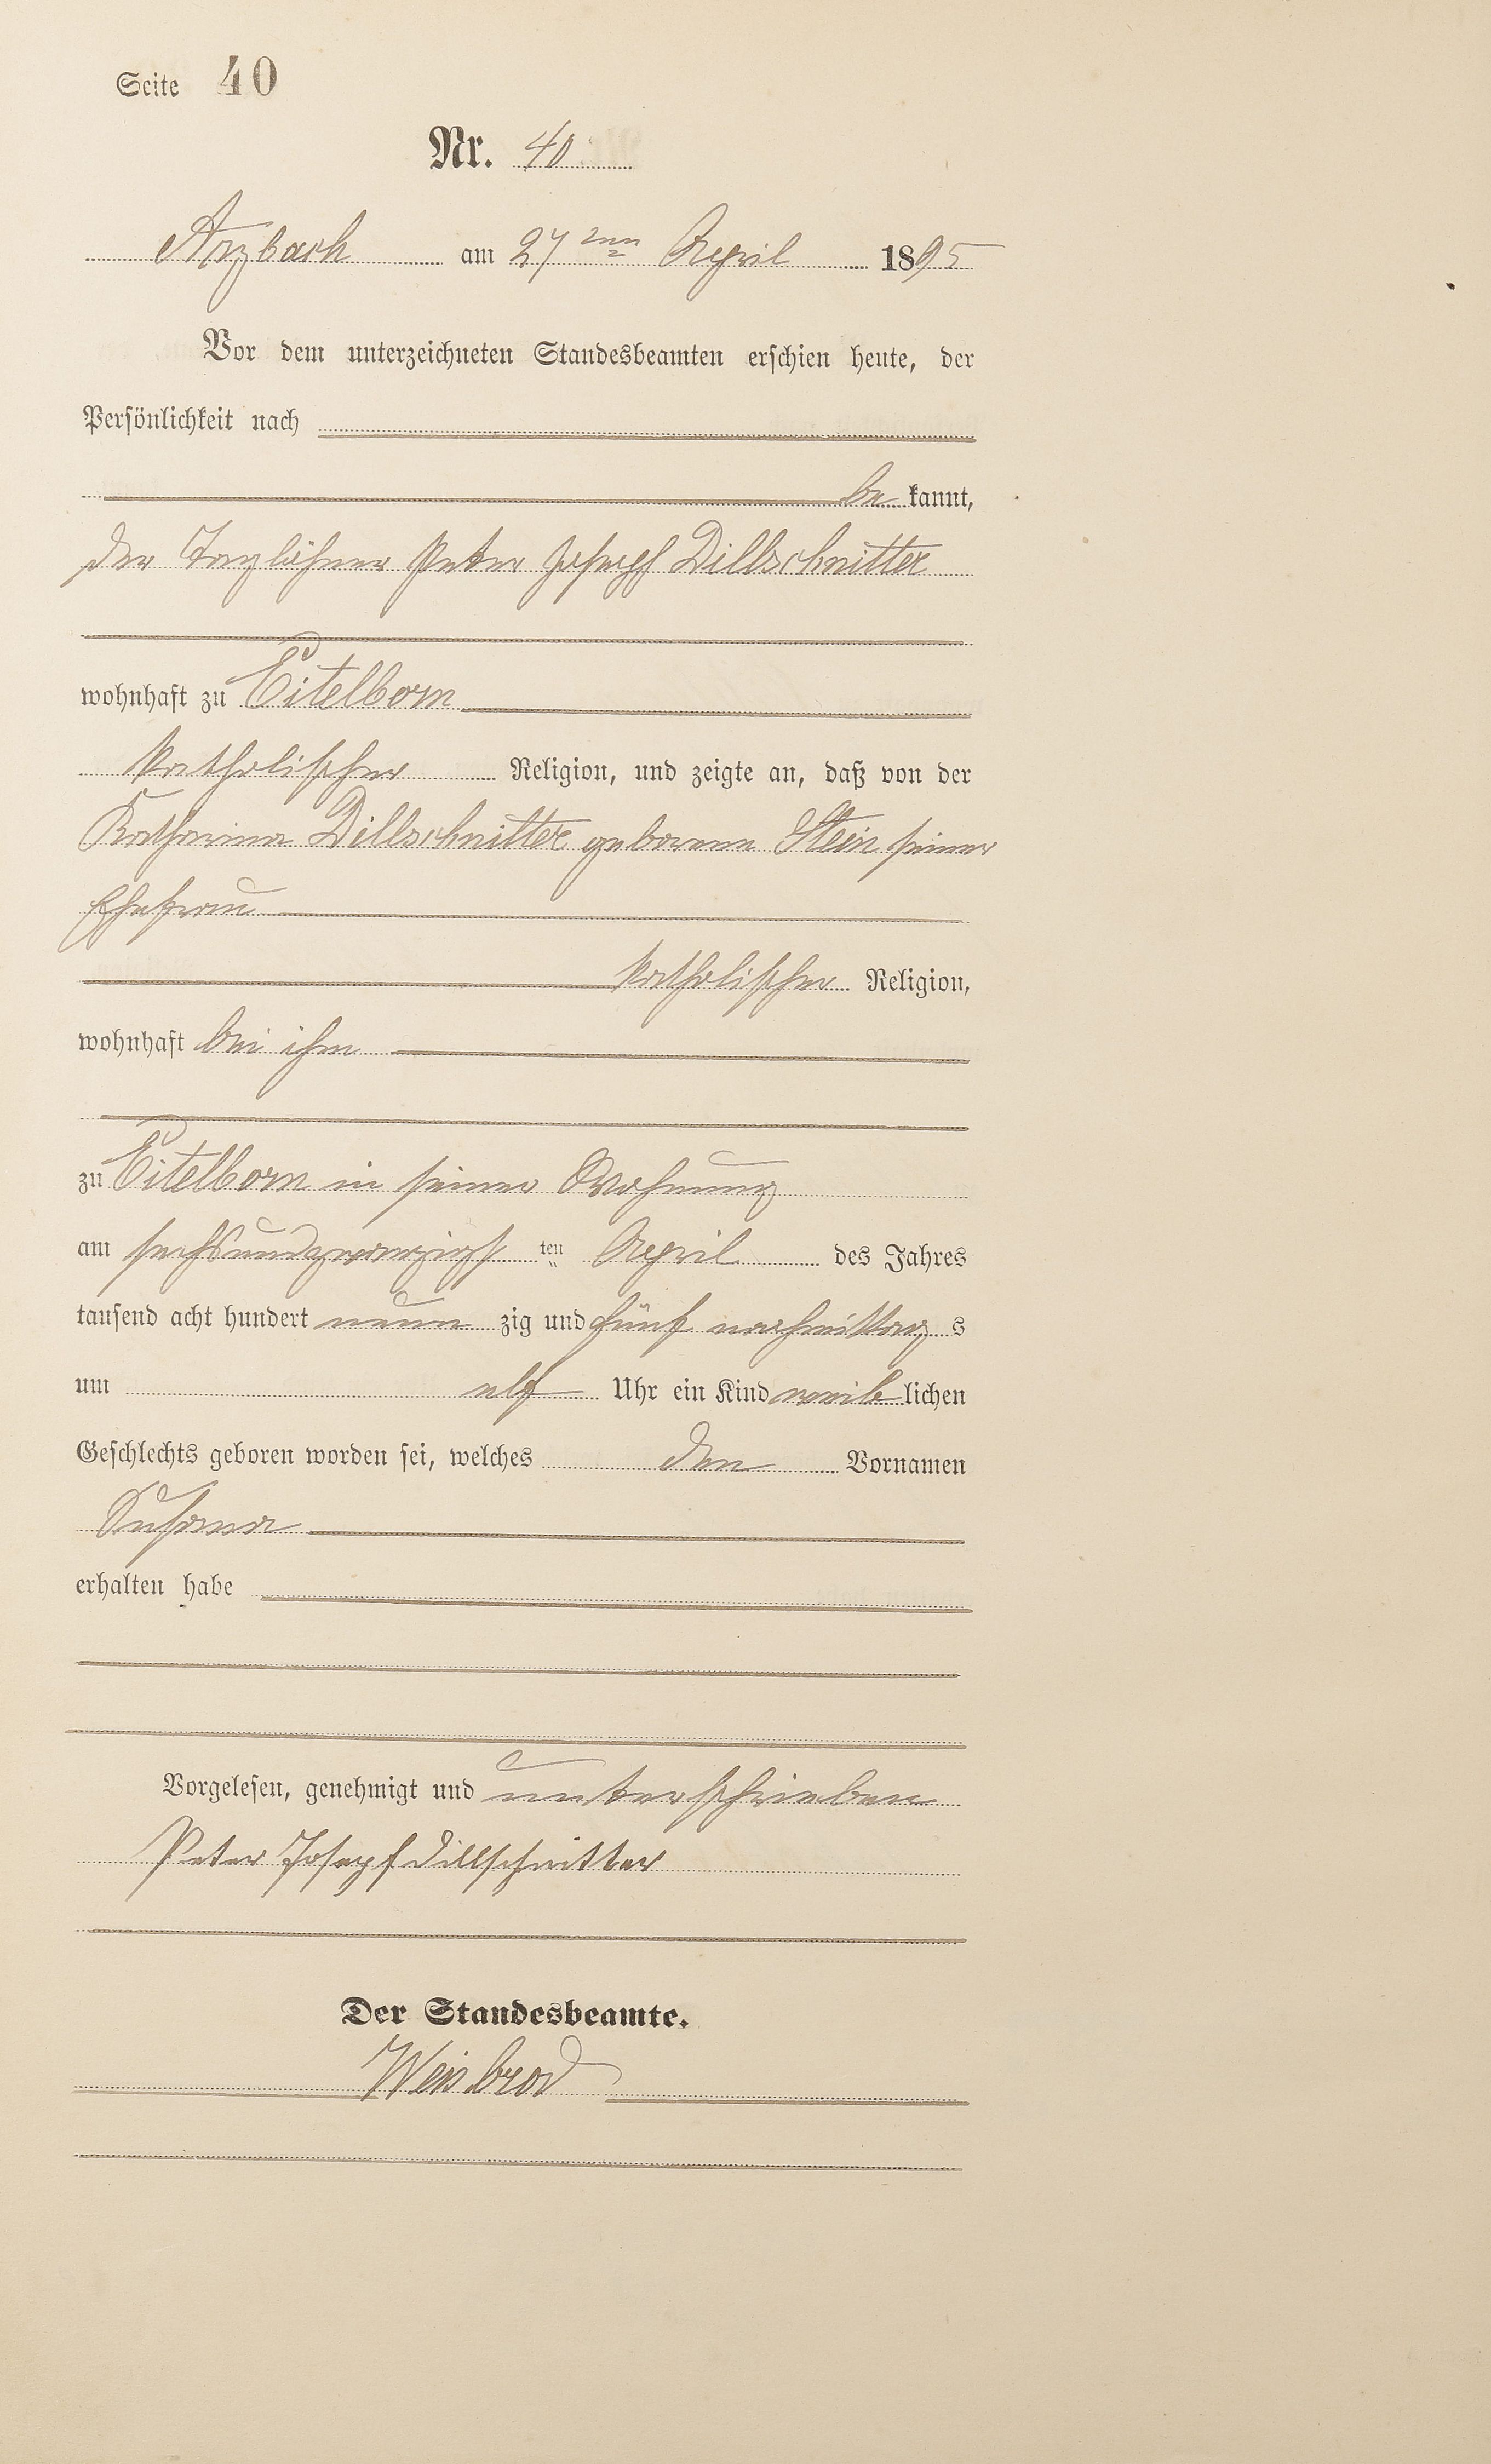 Seite 40
Nr. 40
Arzbach am 27ten April 1895
Vor dem unterzeichneten Standesbeamten erschien heute, der
Persönlichkeit nach
be kannt,
der Taglöhner Peter Joseph Dillschnitter
wohnhaft zu Eitelborn
katholischer Religion, und zeigte an, daß von der
Katharina Dillschnitter geborene Stein seiner
Ehefrau
katholischer Religion,
wohnhaft bei ihm
zu Eitelborn in seiner Wohnung
am sechsundzwanzigst ten April des Jahres
tausend acht hundert neun zig und fünf nachmittag s
um elf Uhr ein Kind weib lichen
Geschlechts geboren worden sei, welches den Vornamen
Susana
erhalten habe
Vorgelesen, genehmigt und unterschrieben
Peter Josepf Dillschnitter
Der Standesbeamte.
Weisbrod